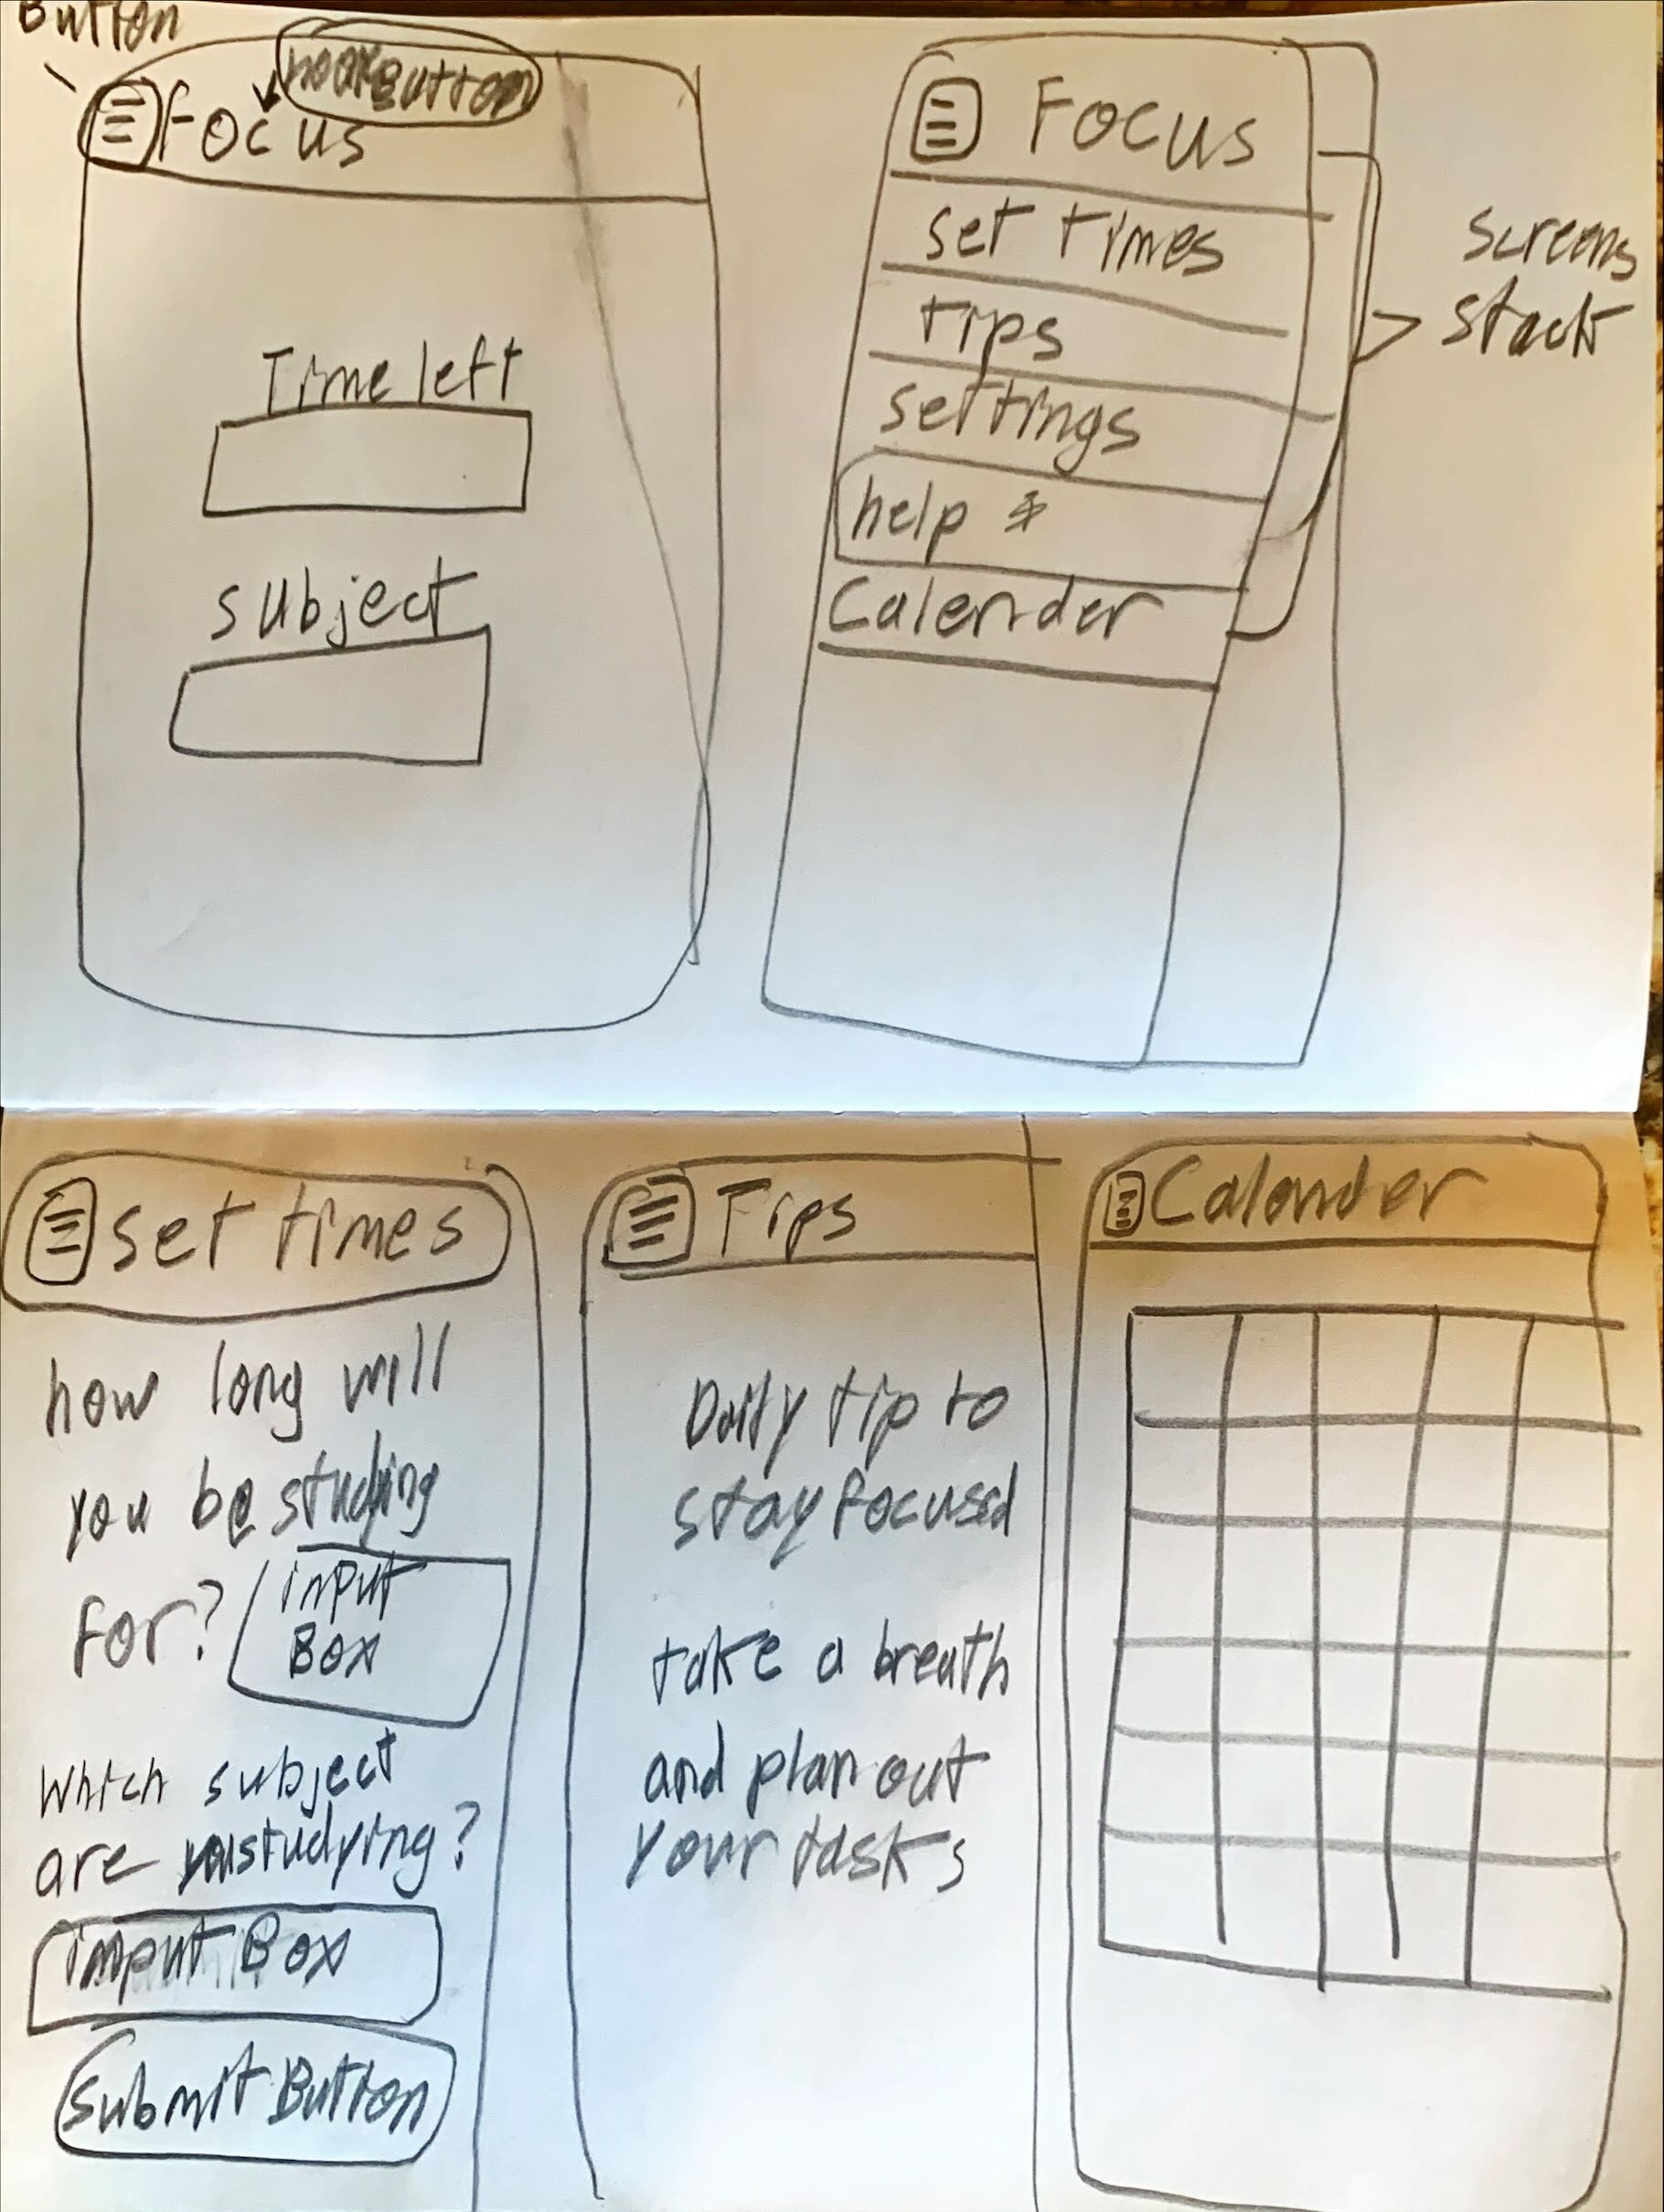 Button
Button
Focus
Time left
subject
Focus
set times
tips
settings
help *
Calender
screens
stack
set times
how long will
you be studying
for?
input
Box
Which subject
are you studying?
input Box
Submit Button
Tips
Daily tip to
stay focused
take a breath
and plan out
your tasks
Calander